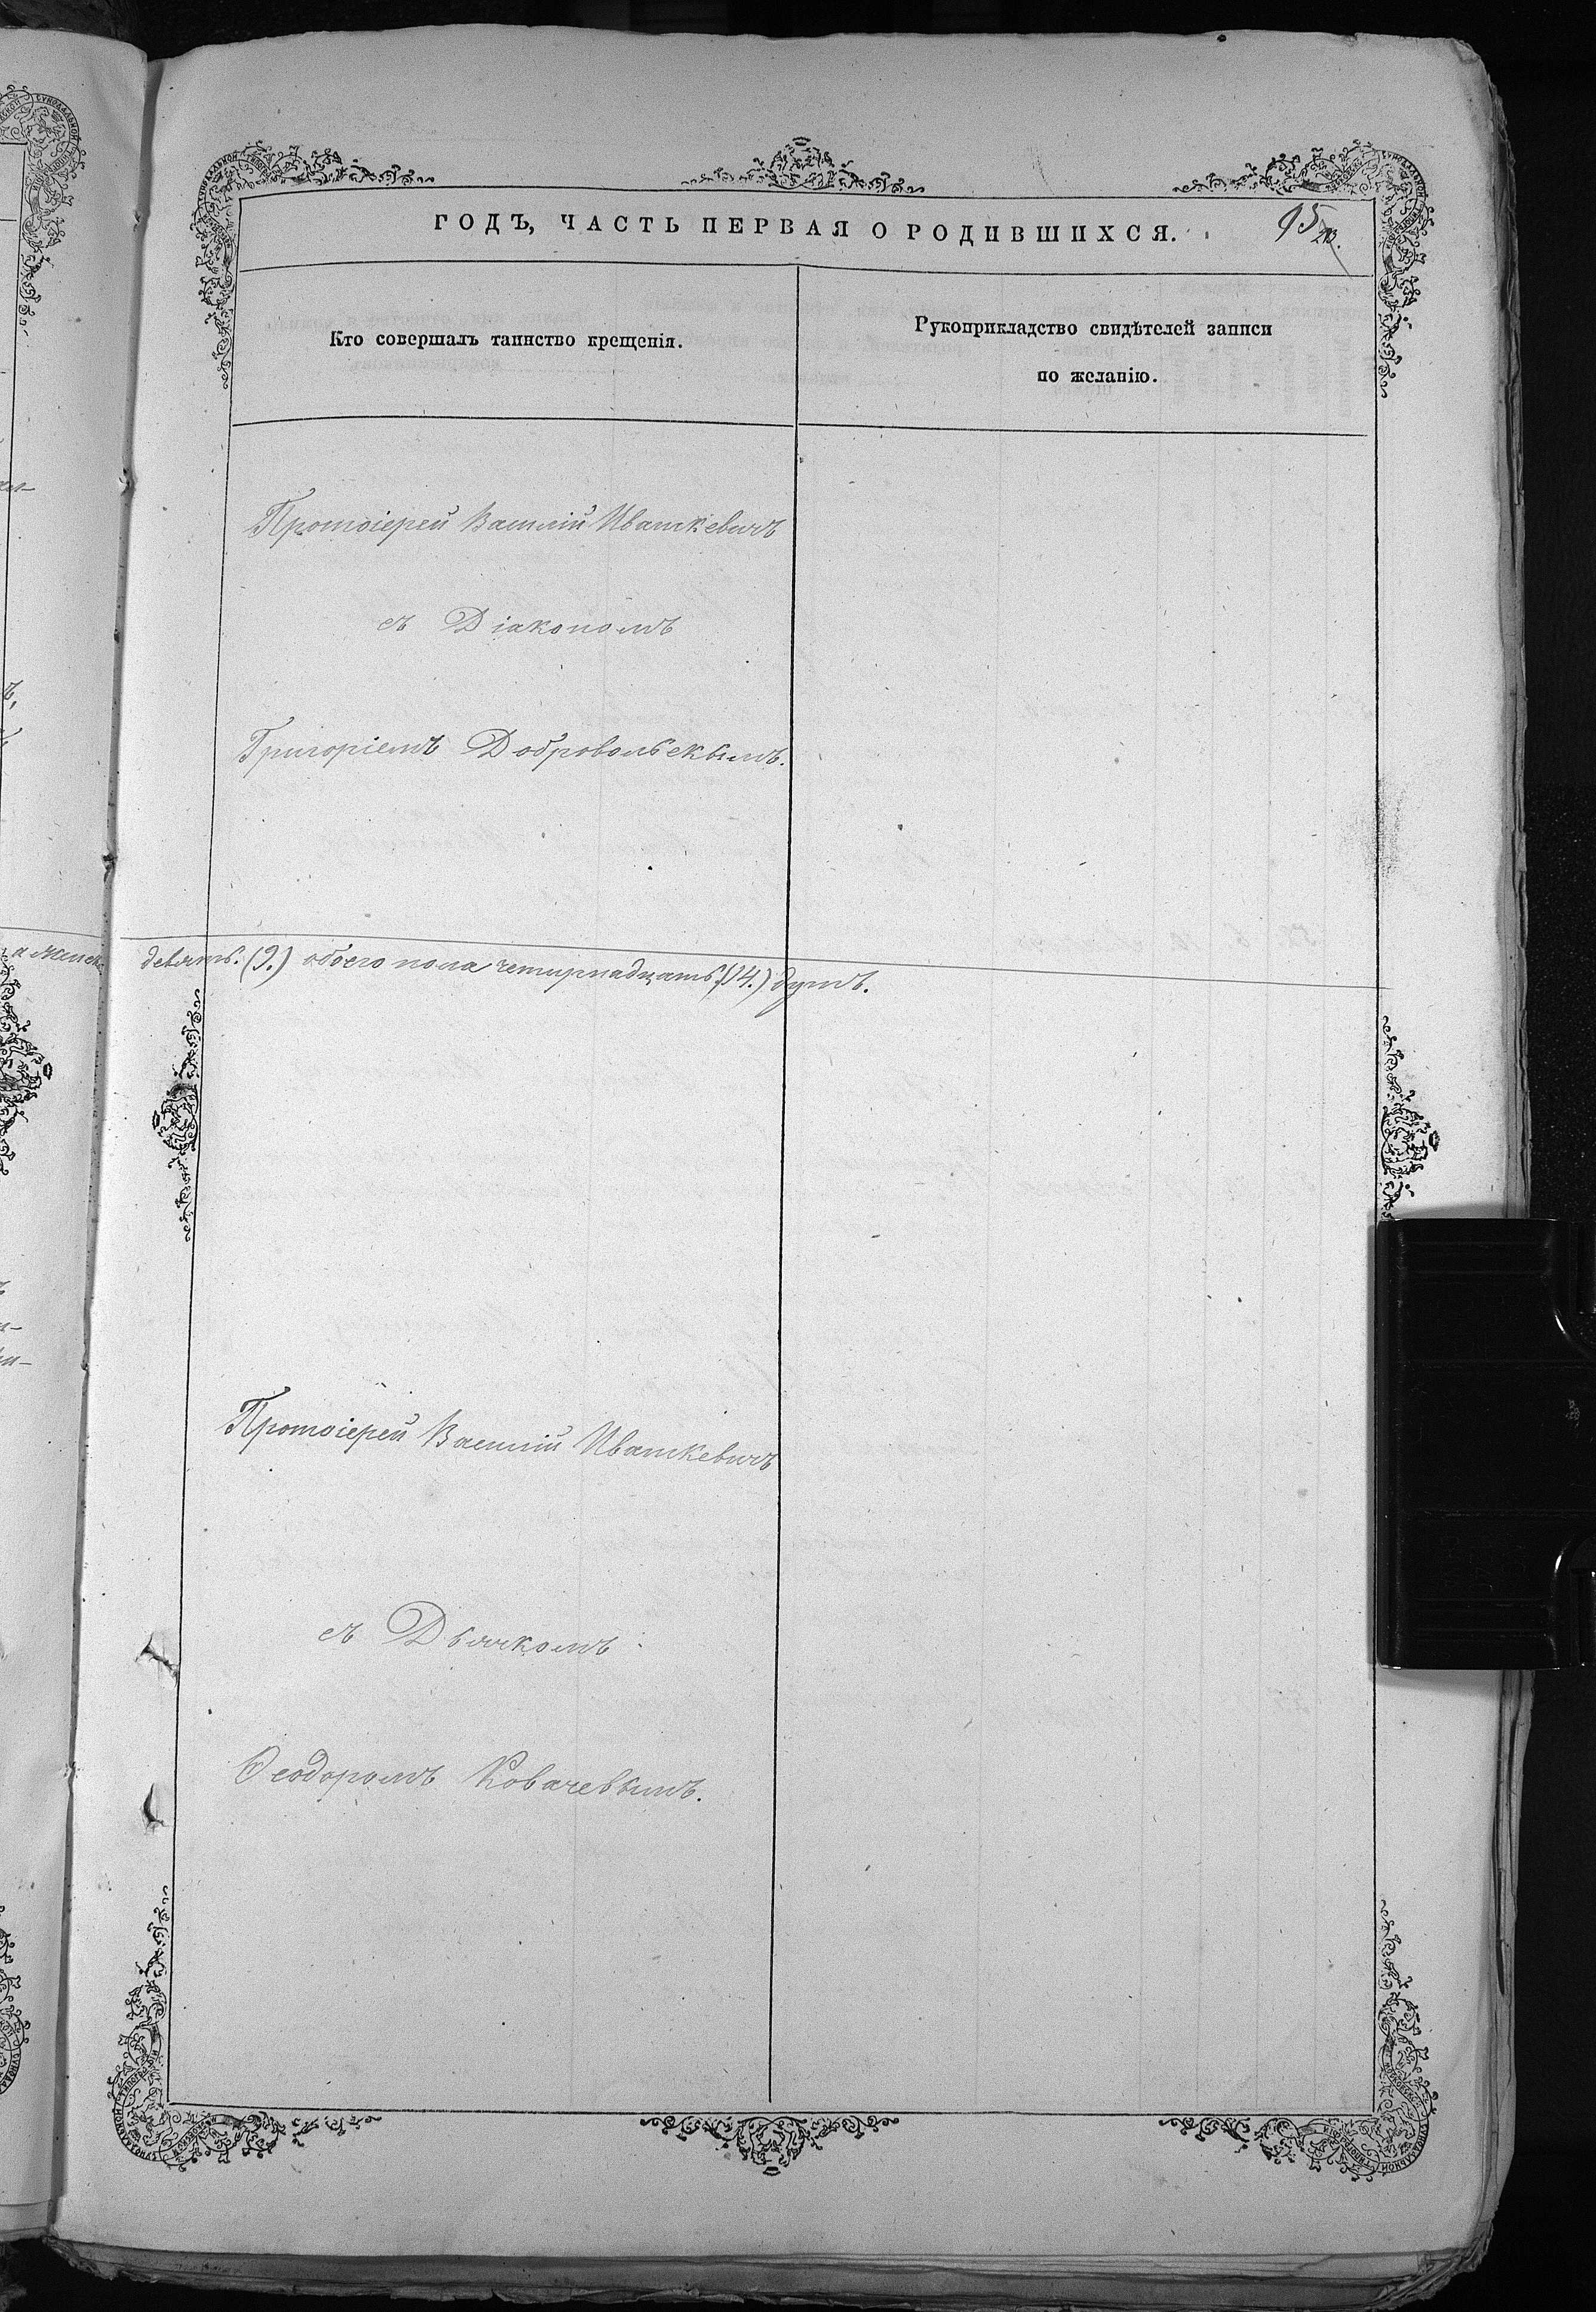 ГОДЪ, ЧАСТЬ ПЕРВАЯ О РОДИВШИХСЯ.
95
Кто совершалъ таинство крещенія.
Рукоприкладство свидѣтелей записи
по желанію.
Протоіерей Василій Ивашкевичъ
съ Діакономъ
Григоріемъ Добровольскимъ.
девять. (9.) обоего пола четырнадцать (14.) душъ.
Протоіерей Василій Ивашкевичъ
съ Дьячкомъ
Ѳеодоромъ Ковачевымъ.